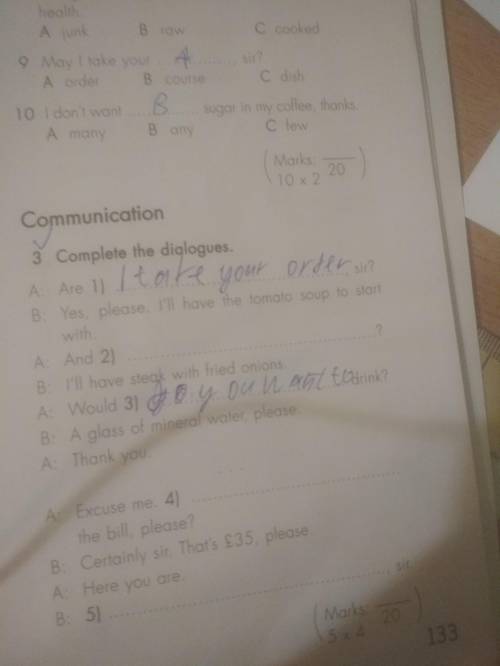 health.
A junk B raw C cooked
9 May I take your ...A..., sir?
A order B course C dish
10 I don't want ...B... sugar in my coffee, thanks.
A many B any C few
(Marks: ___ 10 x 2 20)
Communication
3 Complete the dialogues.
A: Are 1) I take your order, sir?
B: Yes, please. I'll have the tomato soup to start
with.
A: And 2) ..............................?
B: I'll have steak with fried onions.
A: Would 3) do you want to drink?
B: A glass of mineral water, please.
A: Thank you.
A: Excuse me. 4) ..............................
the bill, please?
B: Certainly sir. That's £35, please
A: Here you are.
B: 5) .............................., sir.
(Marks: ___ 5 x 4 20)
133